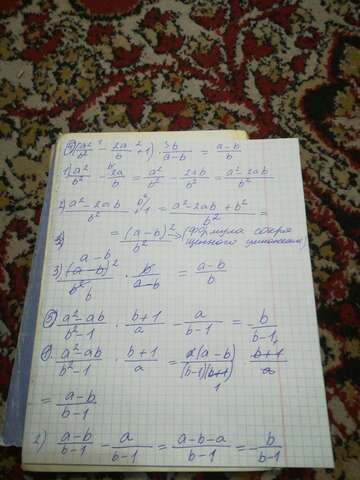 ④ (a²/b² - 2a/b + 1) · b/(a-b) = (a-b)/b
1) a²/b² - 2a/b = a²/b² - 2ab/b² = (a²-2ab)/b²
2) (a²-2ab)/b² + 1 = (a²-2ab+b²)/b² =
= (a-b)²/b² → (формула сокра
щенного умножения)
3) (a-b)²/b² · b/(a-b) = (a-b)/b
⑤ (a²-ab)/(b²-1) · (b+1)/a - a/(b-1) = -b/(b-1)
1. (a²-ab)/(b²-1) · (b+1)/a = a(a-b)/((b-1)(b+1)) · (b+1)/a
= (a-b)/(b-1)
2) (a-b)/(b-1) - a/(b-1) = (a-b-a)/(b-1) = -b/(b-1)